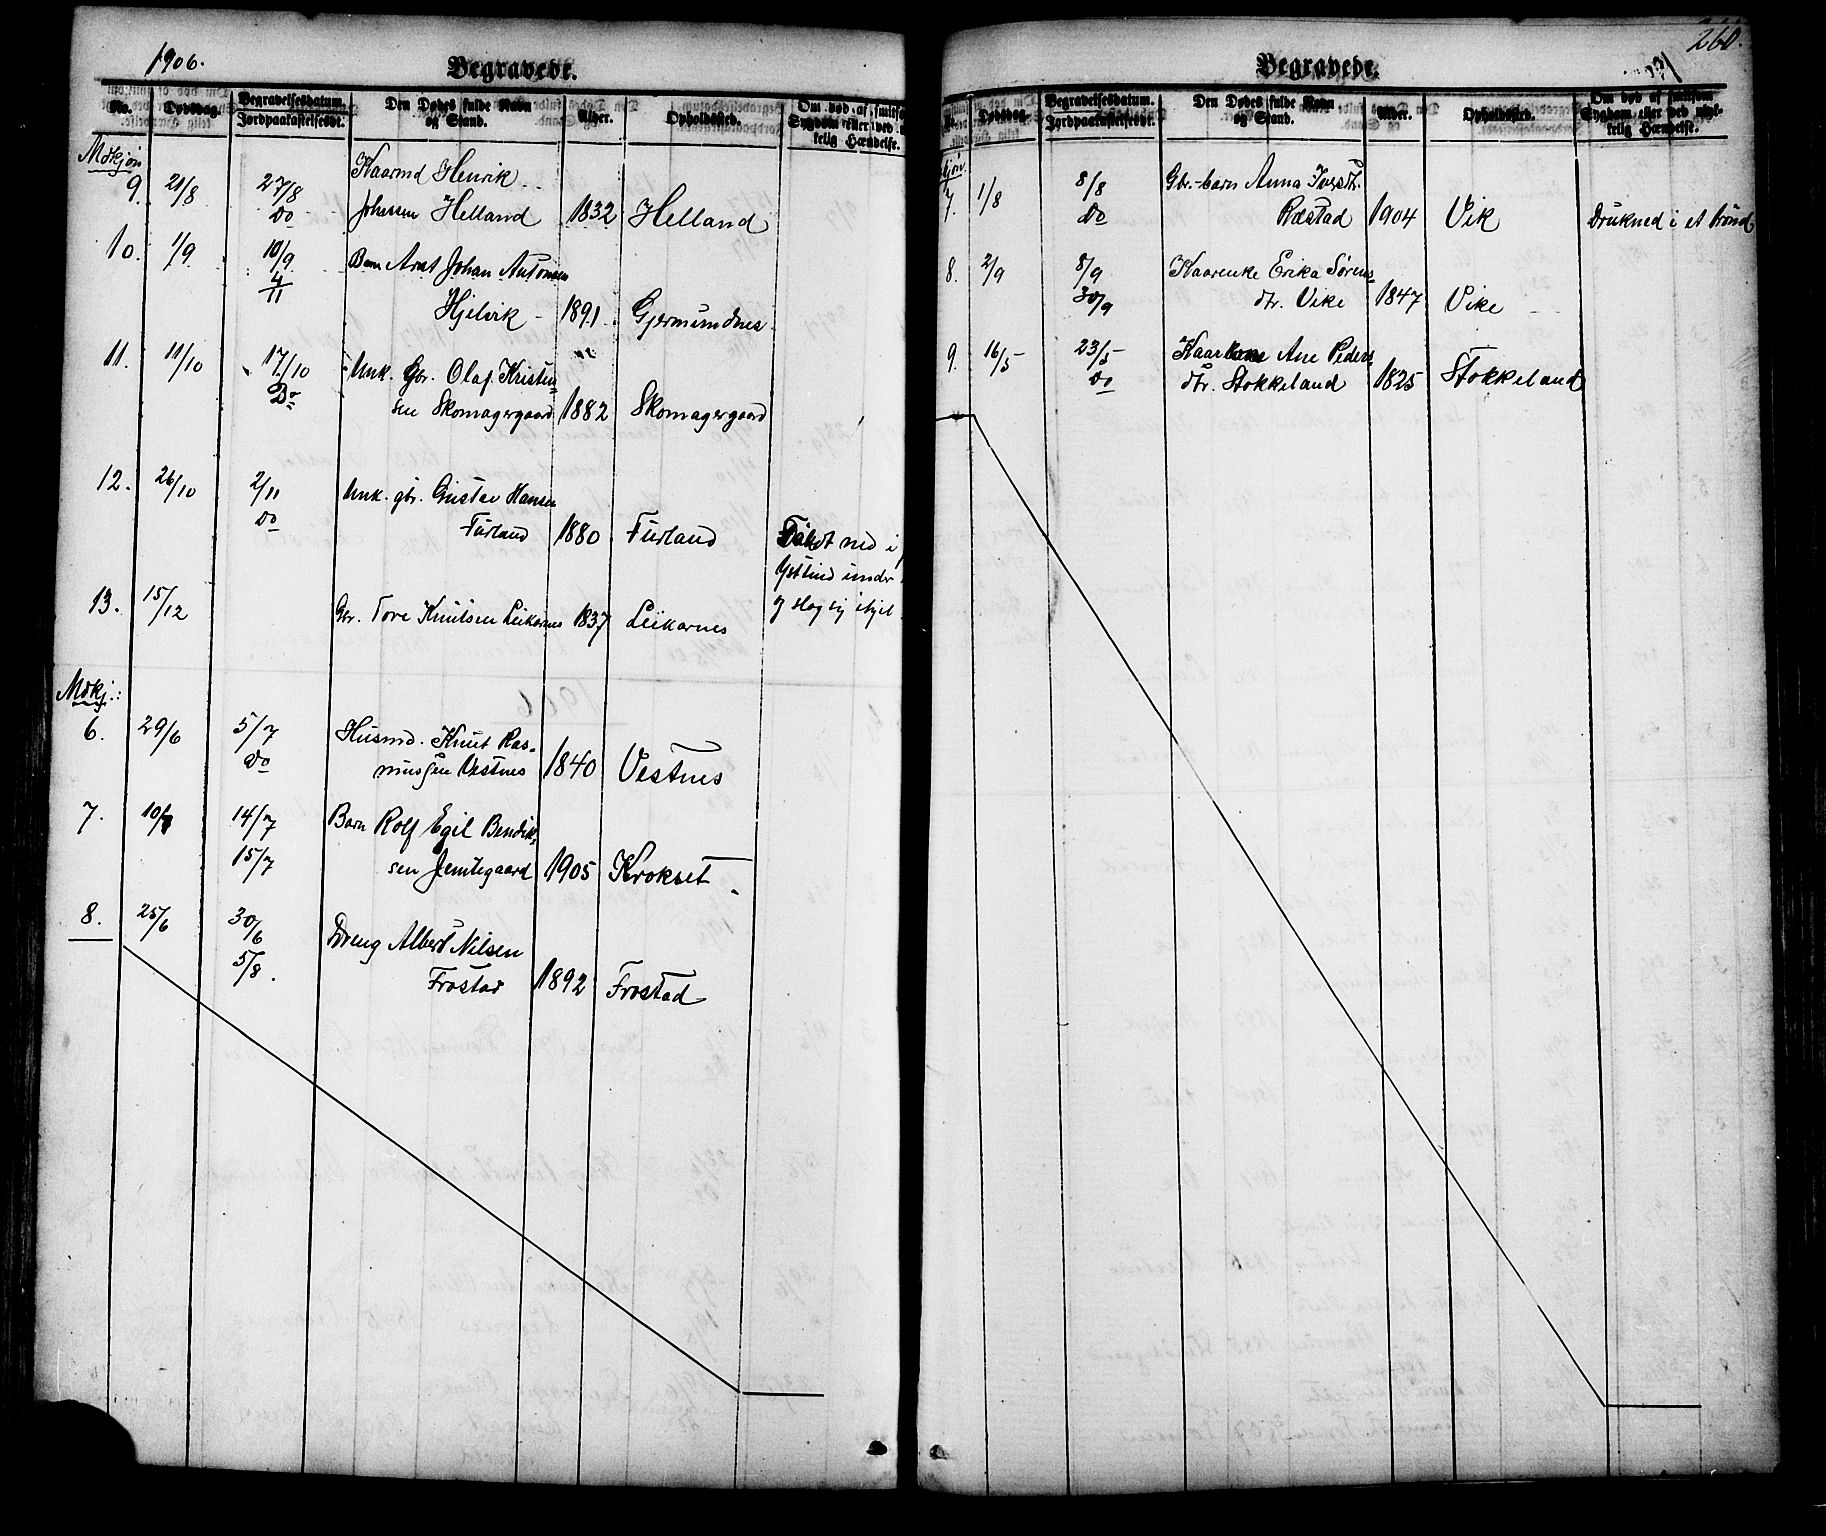 1906.
Begravede.
No.
Dødsdag.
Begravelsesdatum.
Jordpaakastelsesdt.
Den Dødes fulde Navn
og Stand.
Alder.
Opholdssted.
Om død af smitsom
Sygdom eller ved
kelig Hændelse.
Mdkjøn
9. 21/8 27/8 Kaarmd Henrik
do Johssen Helland 1832 Helland
10. 1/9 10/9 Barn Arnt Johan Antonsen
4/11 Hjelvik 1891. Gjermundnes
11. 11/10 17/10 Unk. Gbr. Olaf Kristen-
Do sen Skomagergaard 1882 Skomagergaard
12. 26/10 2/11 Unk. gbr. Gustav Hansen
do Furland 1880 Furland
ned i
under
og slog sig ihjel
13. 15/12 Gbr. Tore Knutsen Leikarnes 1837 Leikarnes
Mdkj.:
6. 29/6 5/7 Husmd. Knut Ras-
do mussen Vestnes 1840 Vestnes
7. 10/7 14/7 Barn Rolf Egil Bendik-
15/7 sen Jemtegaard 1905 Krokset
8. 25/6 30/6 Dreng Albert Nilsen
5/8. Frostad 1892 Frostad
260.
Begravede.
No.
Dødsdag.
Begravelsesdatum.
Jordpaakastelsesdt.
Den Dødes fulde Navn
og Stand.
Alder.
Opholdssted.
Om død af smitsom
Sygdom eller ved ulyk-
kelig Hændelse.
kjøn
7. 1/8 8/8 Gbr.-barn Anna
do Ræstad 1904 Vik Drukned i et brønd
8. 2/9 8/9 Kaarenke Erika Sørens-
30/9 dtr. Vike 1847 Vike
9. 16/5 23/5 Kaarkone Ane Peders
do dtr. Stokkeland 1825 Stokkeland